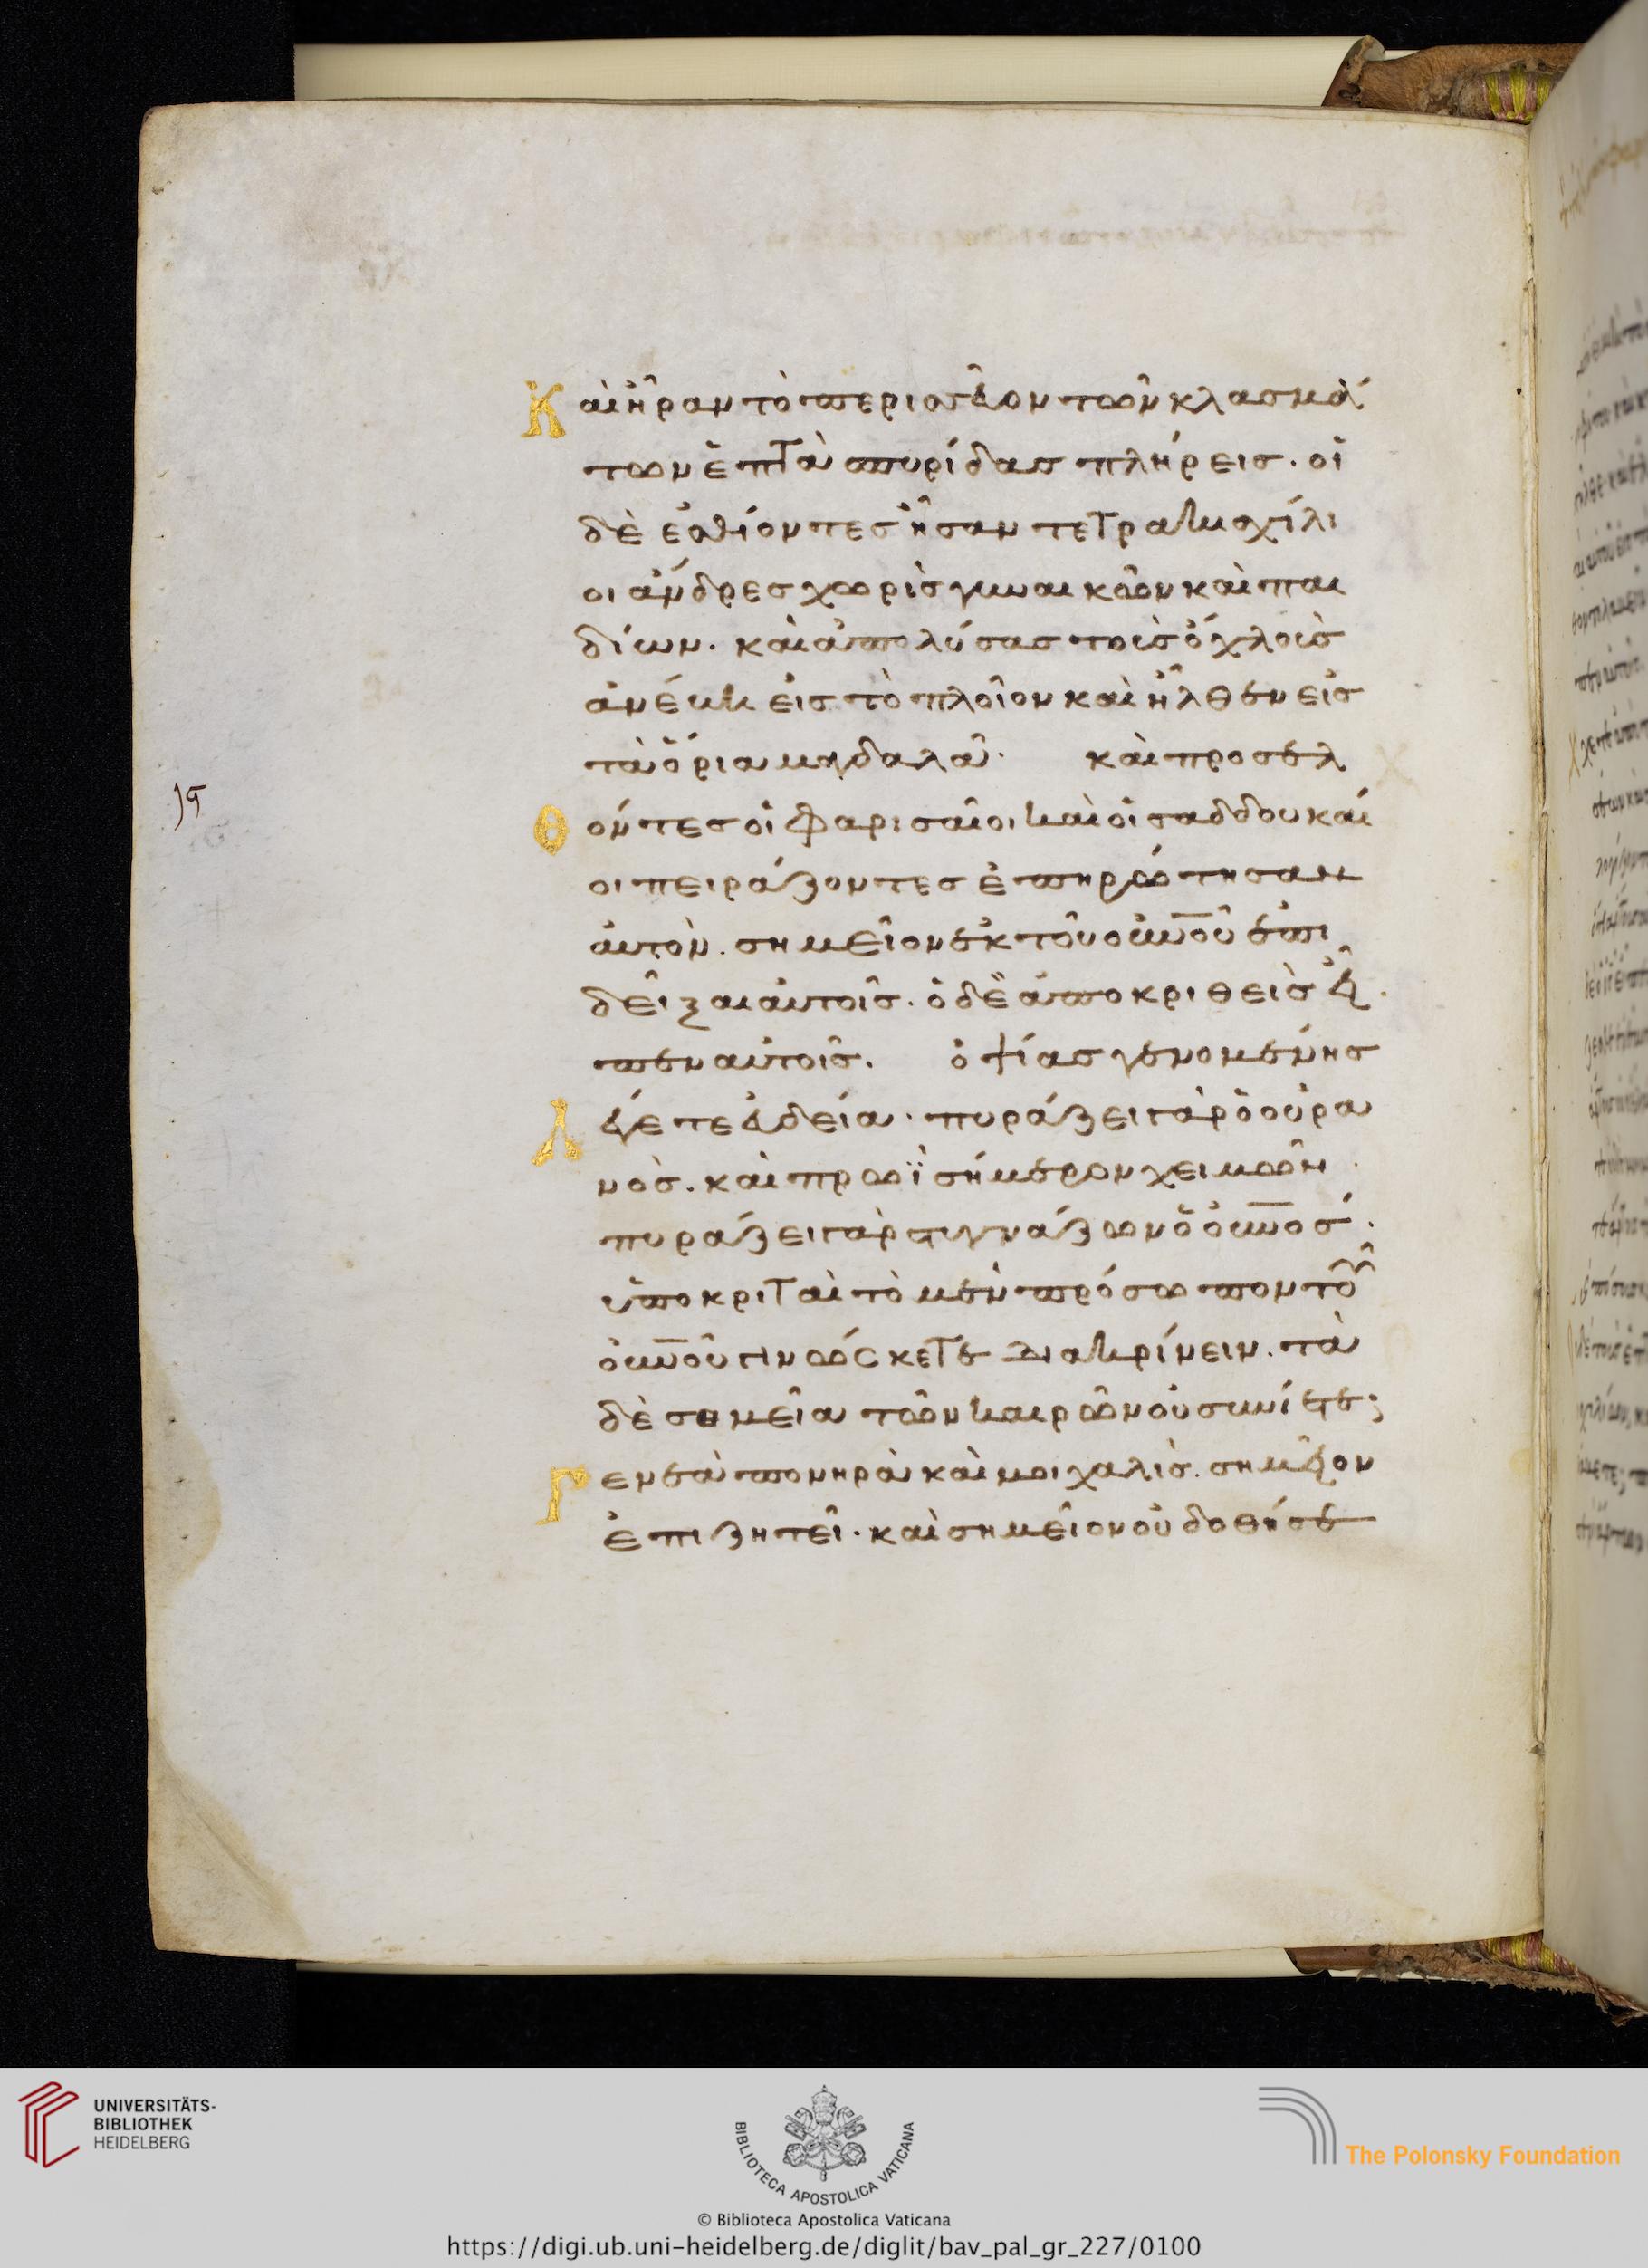 Καὶ ἦραν τὸ περισσεῦον τῶν κλασμά
των ἑπτὰ σπυρίδας πλήρεις. οἱ
δὲ ἐσθίοντες ἦσαν τετρακισχίλι
οι ἄνδρες χωρὶς γυναικῶν καὶ παι
δίων. καὶ ἀπολύσας τοὺς ὄχλους
ἀνέβη εἰς τὸ πλοῖον καὶ ἦλθεν εἰς
τὰ ὅρια μαγδαλά. καὶ προσελ
Θόντες οἱ φαρισαῖοι καὶ οἱ σαδδουκαί
οι πειράζοντες ἐπηρώτησαν
αὐτὸν. σημεῖον ἐκ τοῦ οὐνοῦ ἐπι
δεῖξαι αὐτοῖς. ὁ δὲ ἀποκριθεὶς εἶ
πεν αὐτοῖς. ὀψίας γενομένης
Λέγετε εὐδία. πυράζει γὰρ ὁ οὐρα
νὸς. καὶ πρωῒ σήμερον χειμὼν
πυράζει γὰρ στυγνάζων ὁ οὐνος.
ὑποκριταὶ τὸ μὲν πρόσωπον τοῦ
οὐνοῦ γινώσκετε διακρίνειν. τὰ
δὲ σημεῖα τῶν καιρῶν οὐ συνίετε;
Γενεὰ πονηρὰ καὶ μοιχαλὶς. σημεῖον
ἐπιζητεῖ. καὶ σημεῖον οὐ δοθήσε
UNIVERSITÄTS-
BIBLIOTHEK
HEIDELBERG
BIBLIOTECA APOSTOLICA VATICANA
The Polonsky Foundation
© Biblioteca Apostolica Vaticana
https://digi.ub.uni-heidelberg.de/diglit/bav_pal_gr_227/0100